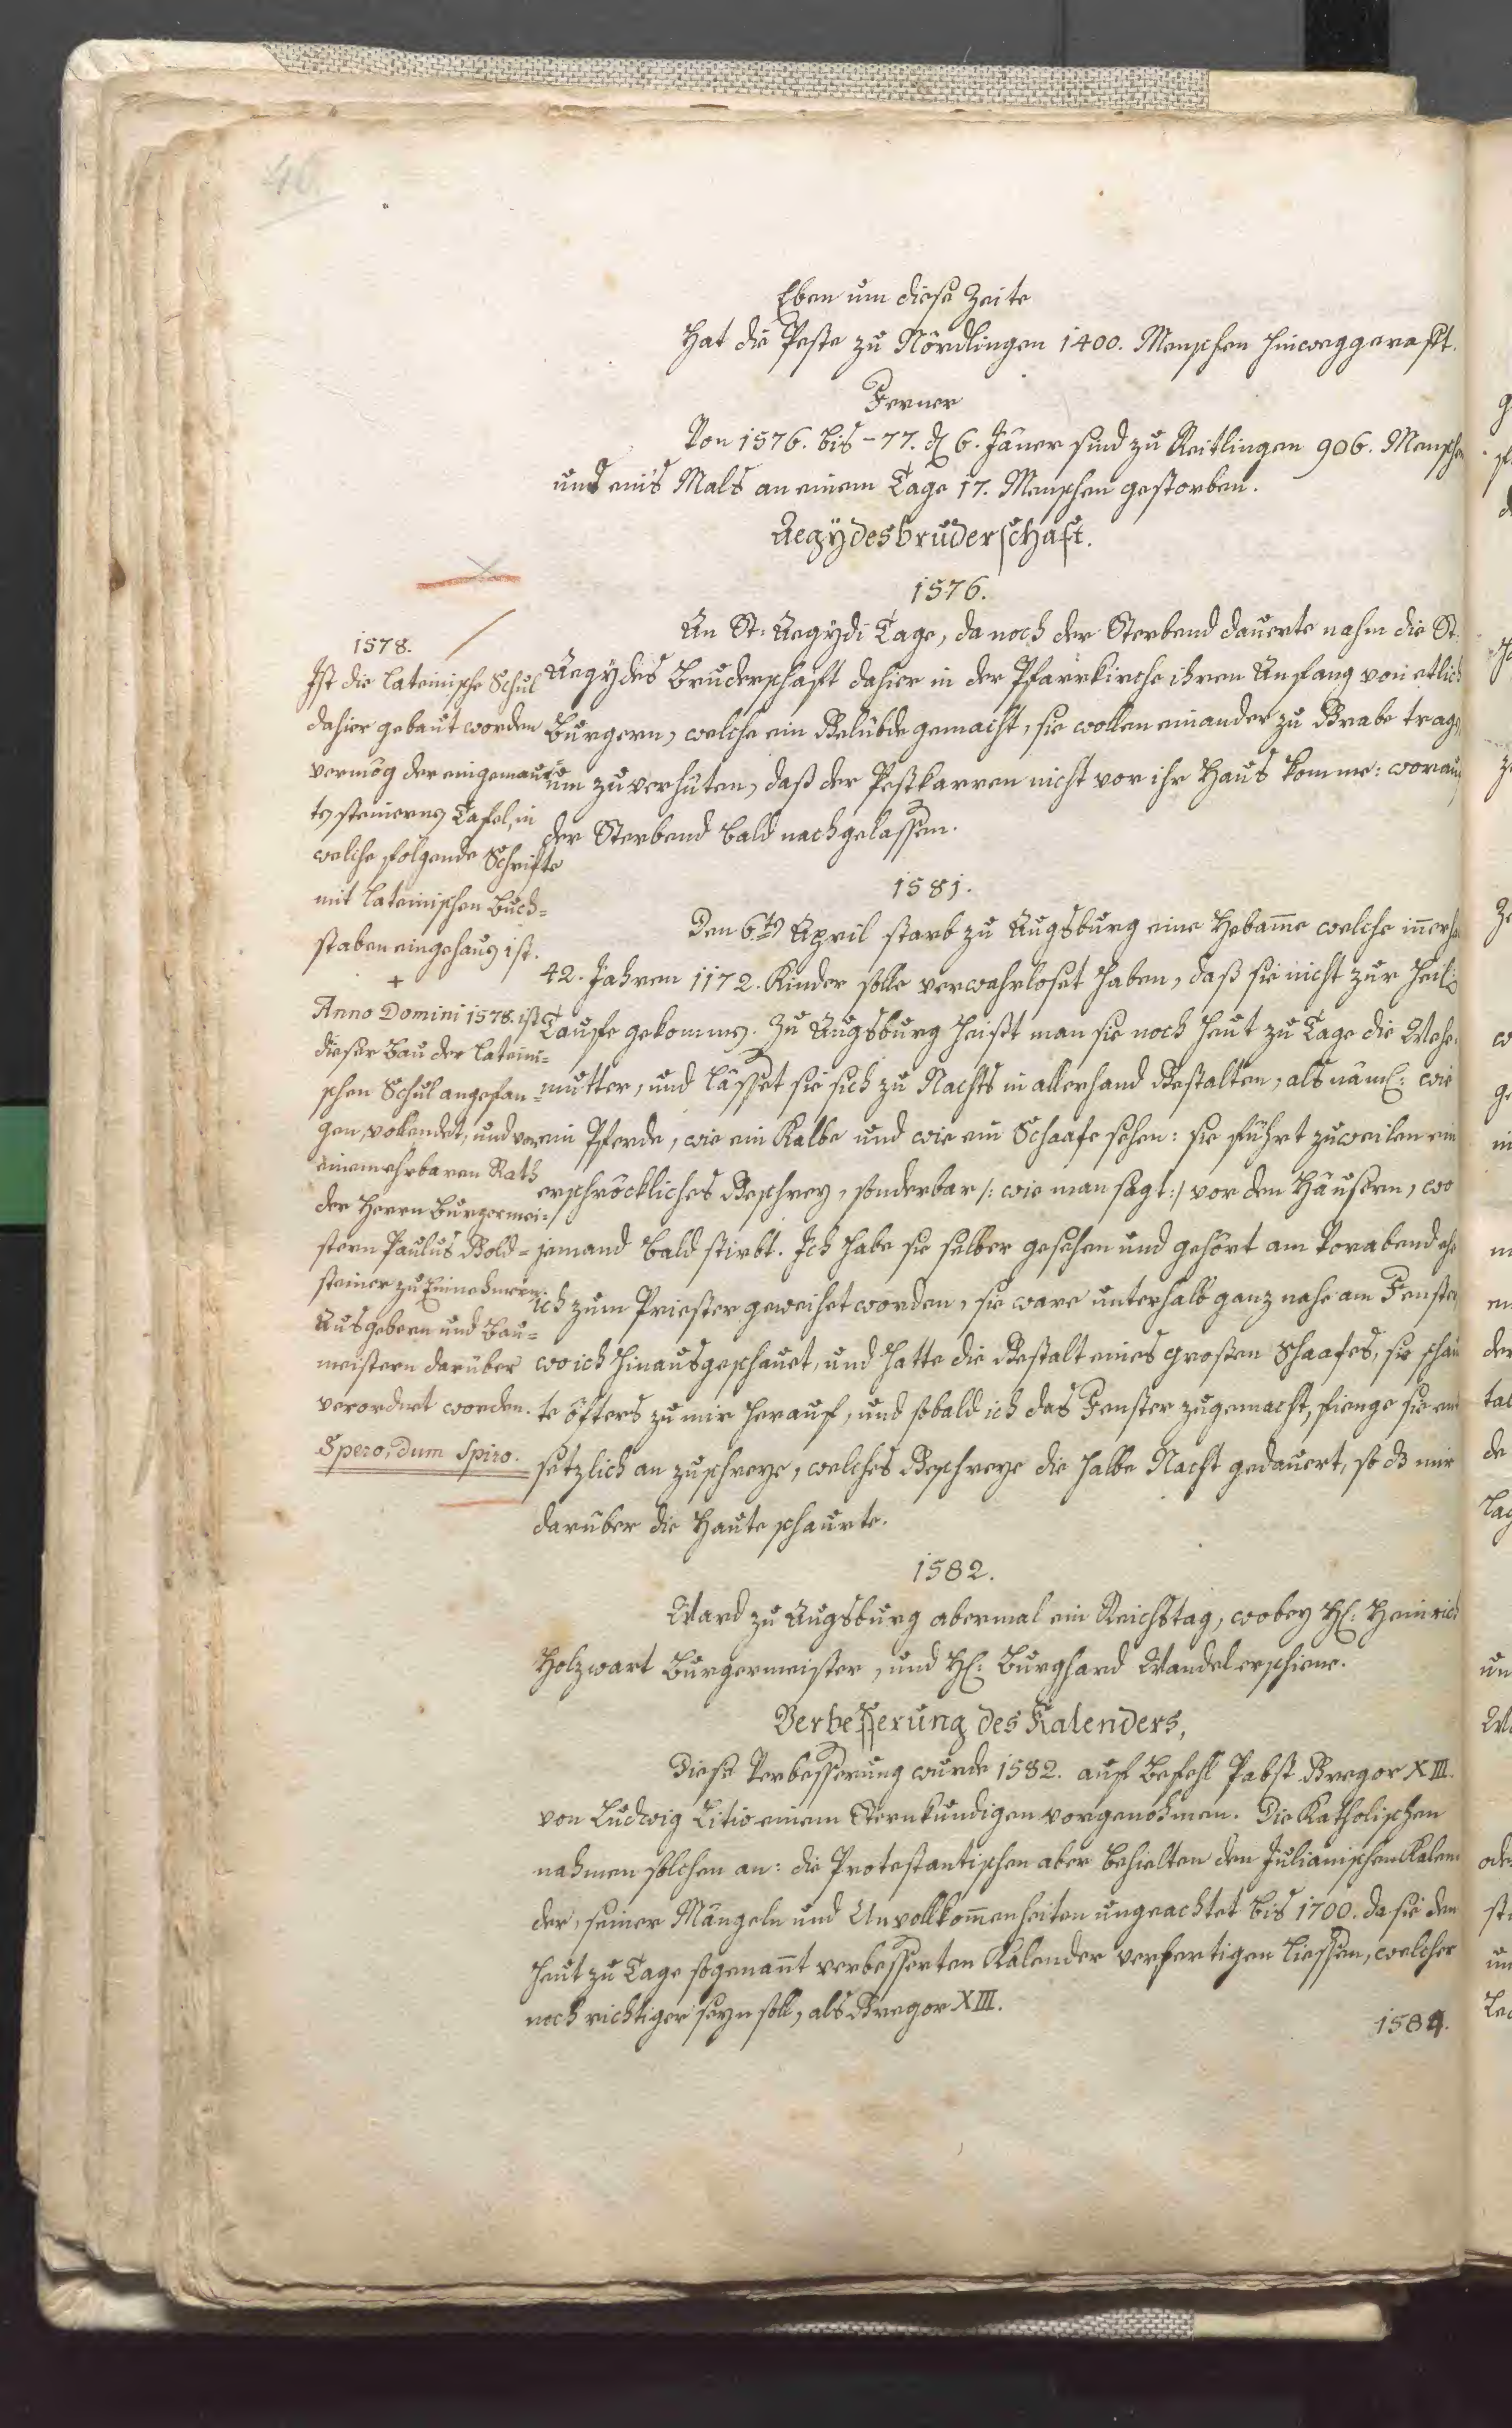 46
Eben um diese Zeite
Hat die Peste zu Nördlingen 1400. Menschen hinweggerafft.
Ferner
Von 1576. bis -77. d 6. Jäner sind zu Reitlingen 906. Menschen
und eins Mals an einem Tage 17. Menschen gestorben.
Aegÿdesbruderschaft.
1576.
An St: Aegÿdi Tage, da noch der Sterbend dauerte nahm die St.
Aegÿdes Bruderschaft dahier in der Pfarrkirche ihren Anfang von etlich
Burgern, welche ein Gelübde gemacht, sie wollen einander zu Grabe tragen
um zu verhüten, daß der Pestkarren nicht vor ihr Haus komme: worauf
der Sterbend bald nachgelassen.
1578.
Ist die lateinische Schul
dahier gebaut worden
vermög der eingemaur¬
ten steinernen Tafel, in
welche folgende Schrifte
mit lateinischen Buch=
staben eingehauen ist.
+
Anno Domini 1578. ist
dieser Bau der Lateini=
schen Schul angefan=
gen, vollendet, und von
einem ehrbaren Rath
der Herrn Burgermei=
stern Paulus Gold=
steiner zu Einnehmern
Ausgebern und Bau=
meistern darüber
verordnet worden.
Spero, dum Spiro.
1581.
Den 6ten April starb zu Augsburg eine Hebamme welche innerha
42. Jahren 1172. Kinder solle verwahrloset haben, daß sie nicht zur Heil:
Taufe gekommen. Zu Augsburg heißt man sie noch heut zu Tage die Wehe
mutter, und lässet sie sich zu Nachts in allerhand Gestalten, als näml: wie
ein Pferde, wie ein Kalbe und wie ein Schaafe sehen: sie führt zuweilen ein
erschröckliches Geschrey, sonderbar /: wie man sagt :/ vor den Häusern, wo
jemand bald stirbt. Ich habe sie selber gesehen und gehört am Vorabend ehe
ich zum Priester geweihet worden, sie ware unterhalb ganz nahe am Fenster
wo ich hinausgeschauet, und hatte die Gestalt eines großen Schaafes, sie schau
te öfters zu mir herauf, und sobald ich das Fenster zugemacht, fienge sie ent
setzlich an zu schreye, welches Geschreye die halbe Nacht gedauert, so dß mir
darüber die Haute schaurte.
1582.
Ward zu Augsburg abermal ein Reichstag, wobey H: Heinrich
Holzwart Burgermeister, und H: Burghard Wandel erschiene.
Verbesserung des Kalenders,
Diese Verbesserung wurde 1582. auf Befehl Pabst Gregor XIII.
von Ludwig Litio einem Sternkundigen vorgenohmen. Die Katholischen
nahmen solchen an: die Protestantischen aber behielten den Julianischen Kalen
der, seiner Mängeln und Unvollkommenheiten ungeachtet bis 1700. da sie den
heut zu Tage sogenannt verbesserten Kalender verfertigen liessen, welcher
noch richtiger seyn soll, als Gregor XIII.
1584.